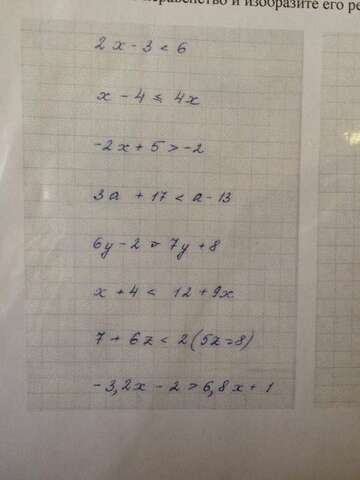 неравенство и изобразите его ре
2x - 3 < 6
x - 4 ≤ 4x
-2x + 5 > -2
3a + 17 < a - 13
6y - 2 > 7y + 8
x + 4 < 12 + 9x
7 + 6z < 2(5z = 8)
-3,2x - 2 > 6,8x + 1